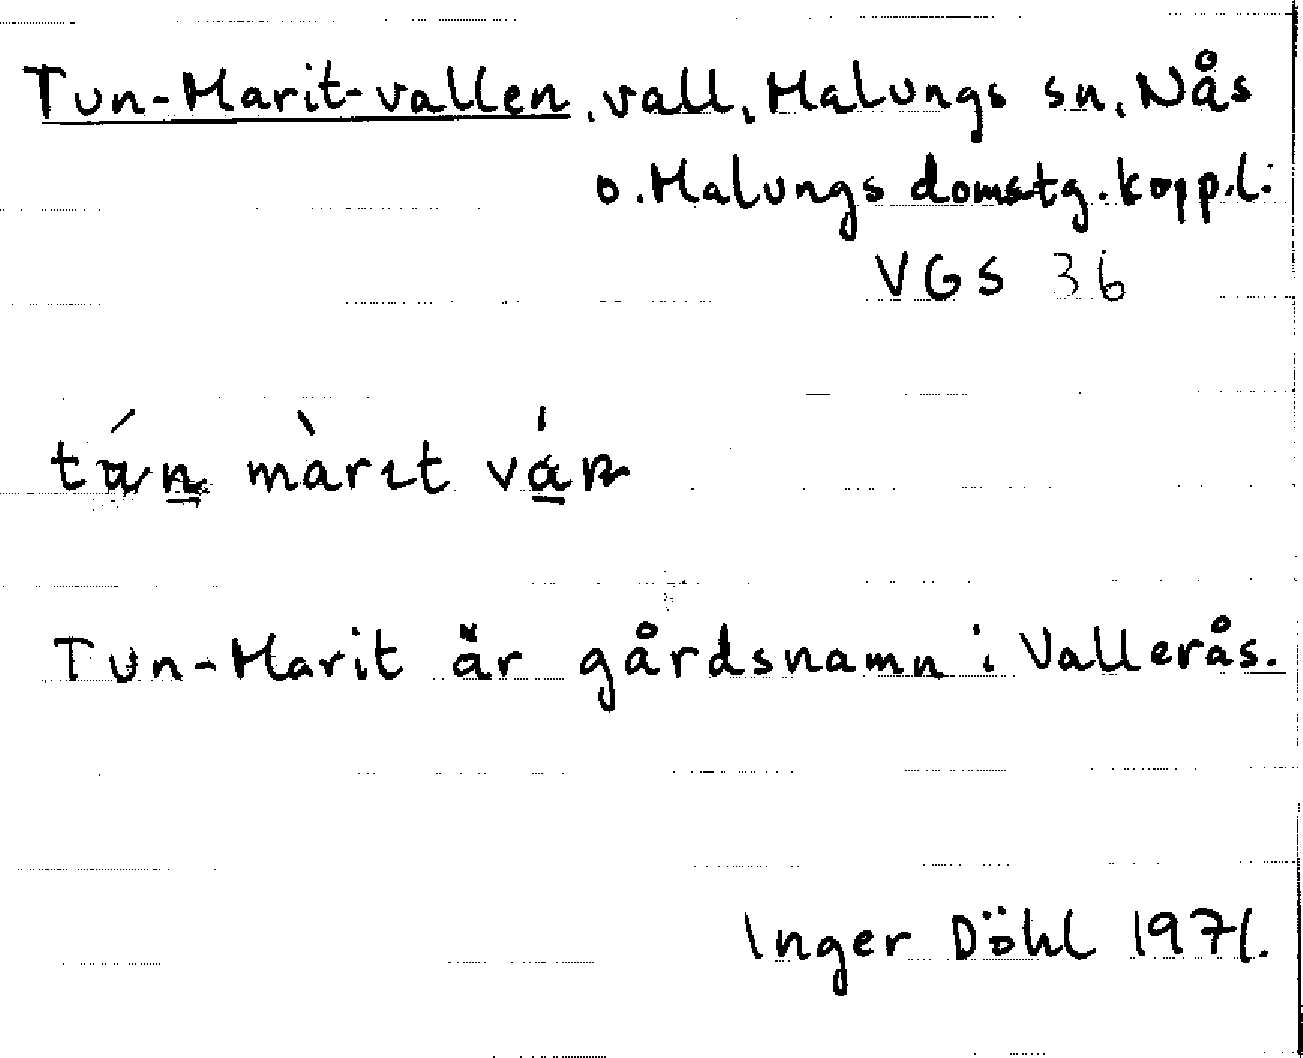 Tun-Marit-vallen, vall, Malungs sn, Nås
o. Malungs domstg. koppl.:
VGS 36
màrɩt
Tun-Marit är gårdsnamn i Vallerås.
Inger Döhl 1971.